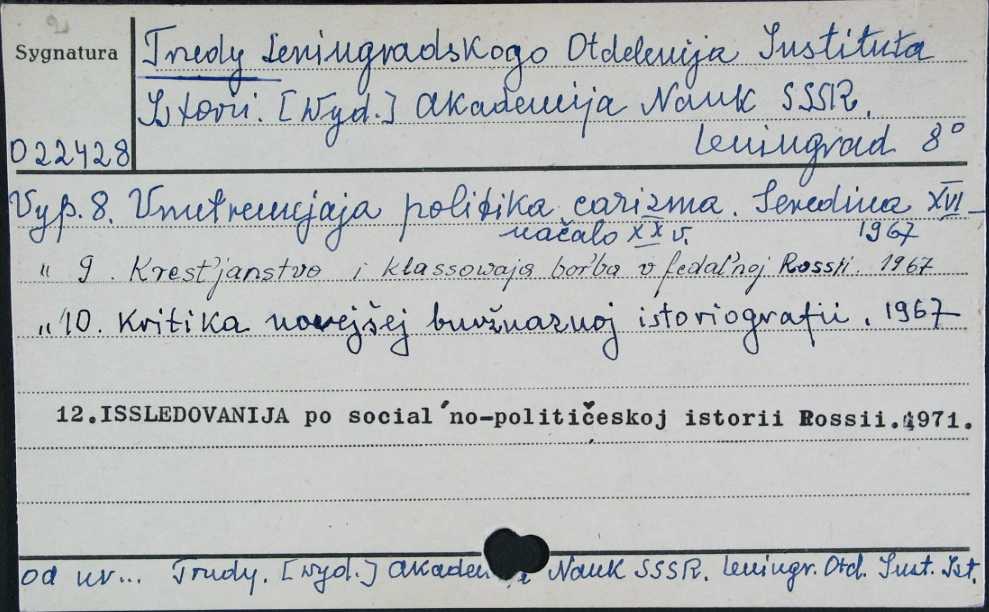 2
Sygnatura
Trudy Leningradskogo Otdelenija Instituta
Istorii. [Wyd.] Akademija Nauk SSSR.
Leningrad 8°
022428
Vyp. 8. Vnutrennjaja politika carizma. Seredina XVI –
načalo XX v. 1967
" 9. Krest'janstvo i klassowaja bor'ba v fedal'noj Rossii. 1967
" 10. Kritika novejšej buržuaznoj istoriografii. 1967
12.ISSLEDOVANIJA po social'no-političeskoj istorii Rossii.1971.
od nr... Trudy. [Wyd.] Akademija Nauk SSSR. Leningr. Otd. Inst. Ist.